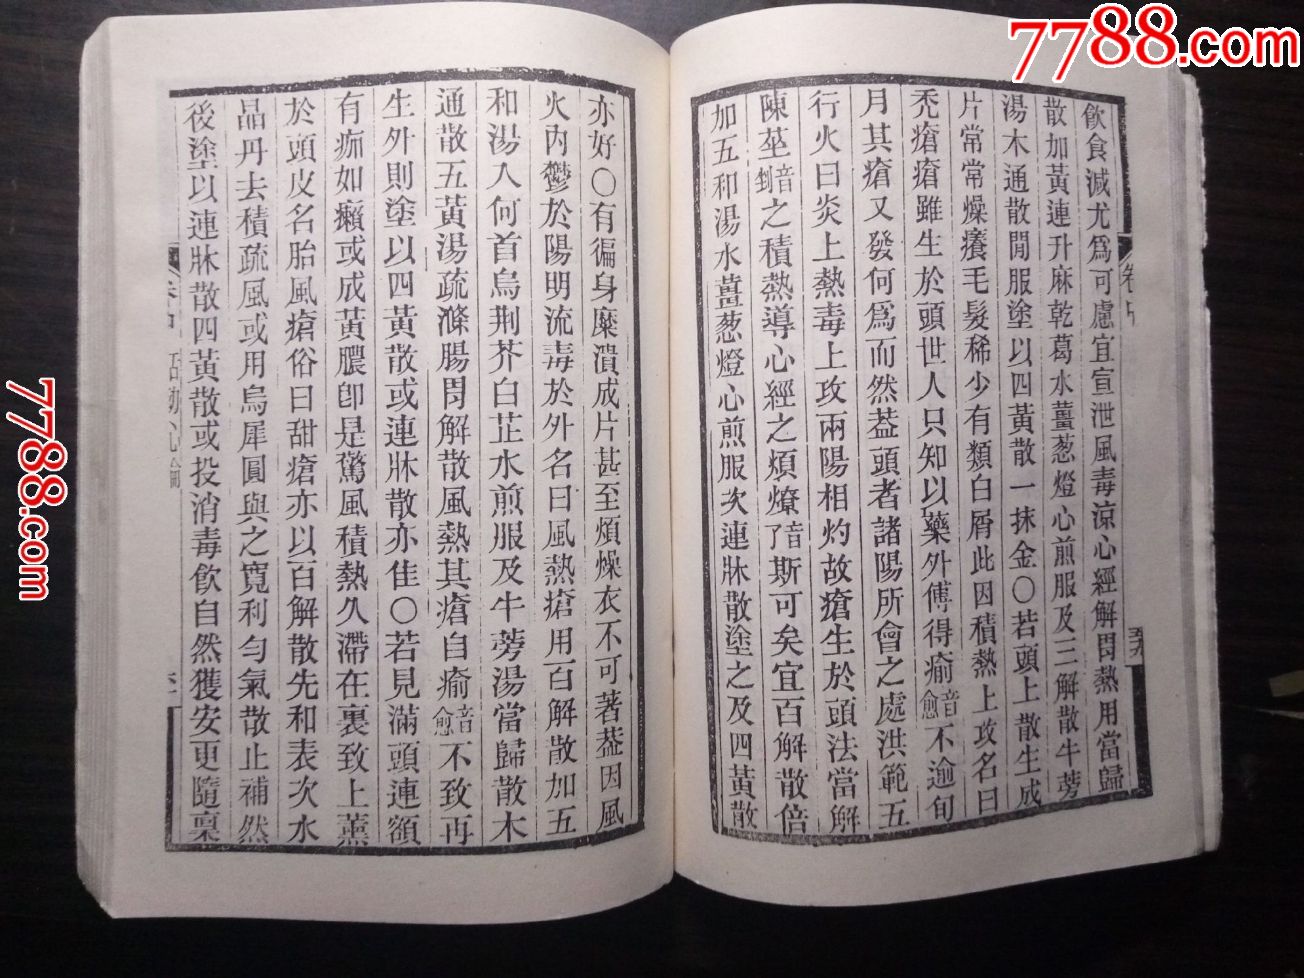 7788.com
飲食減尤爲可慮宜宣泄風毒涼心經解門熱用當歸
散加黃連升麻乾葛水薑葱燈心煎服及三解散牛蒡
湯木通散閒服塗以四黃散一抹金○若頭上散生成
片常常燥癢毛髮稀少有類白屑此因積熱上攻名曰
禿瘡瘡雖生於頭世人只知以藥外傅得瘉音愈不逾旬
月其瘡又發何爲而然葢頭者諸陽所會之處洪範五
行火曰炎上熱毒上攻兩陽相灼故瘡生於頭法當解
陳莝音剉之積熱導心經之煩燎音了斯可矣宜百解散倍
加五和湯水薑葱燈心煎服次連牀散塗之及四黃散
亦好○有徧身糜潰成片甚至煩燥衣不可著葢因風
火内鬱於陽明流毒於外名曰風熱瘡用百解散加五
和湯入何首烏荆芥白芷水煎服及牛蒡湯當歸散木
通散五黃湯疏滌腸胃解散風熱其瘡自瘉音愈不致再
生外則塗以四黃散或連牀散亦佳○若見滿頭連額
有痂如癩或成黃膿卽是驚風積熱久滯在裏致上薰
於頭皮名胎風瘡俗曰甜瘡亦以百解散先和表次水
晶丹去積疏風或用烏犀圓與之寬利匀氣散止補然
後塗以連牀散四黃散或投消毒飲自然獲安更隨稟
活幼心論
7788.com